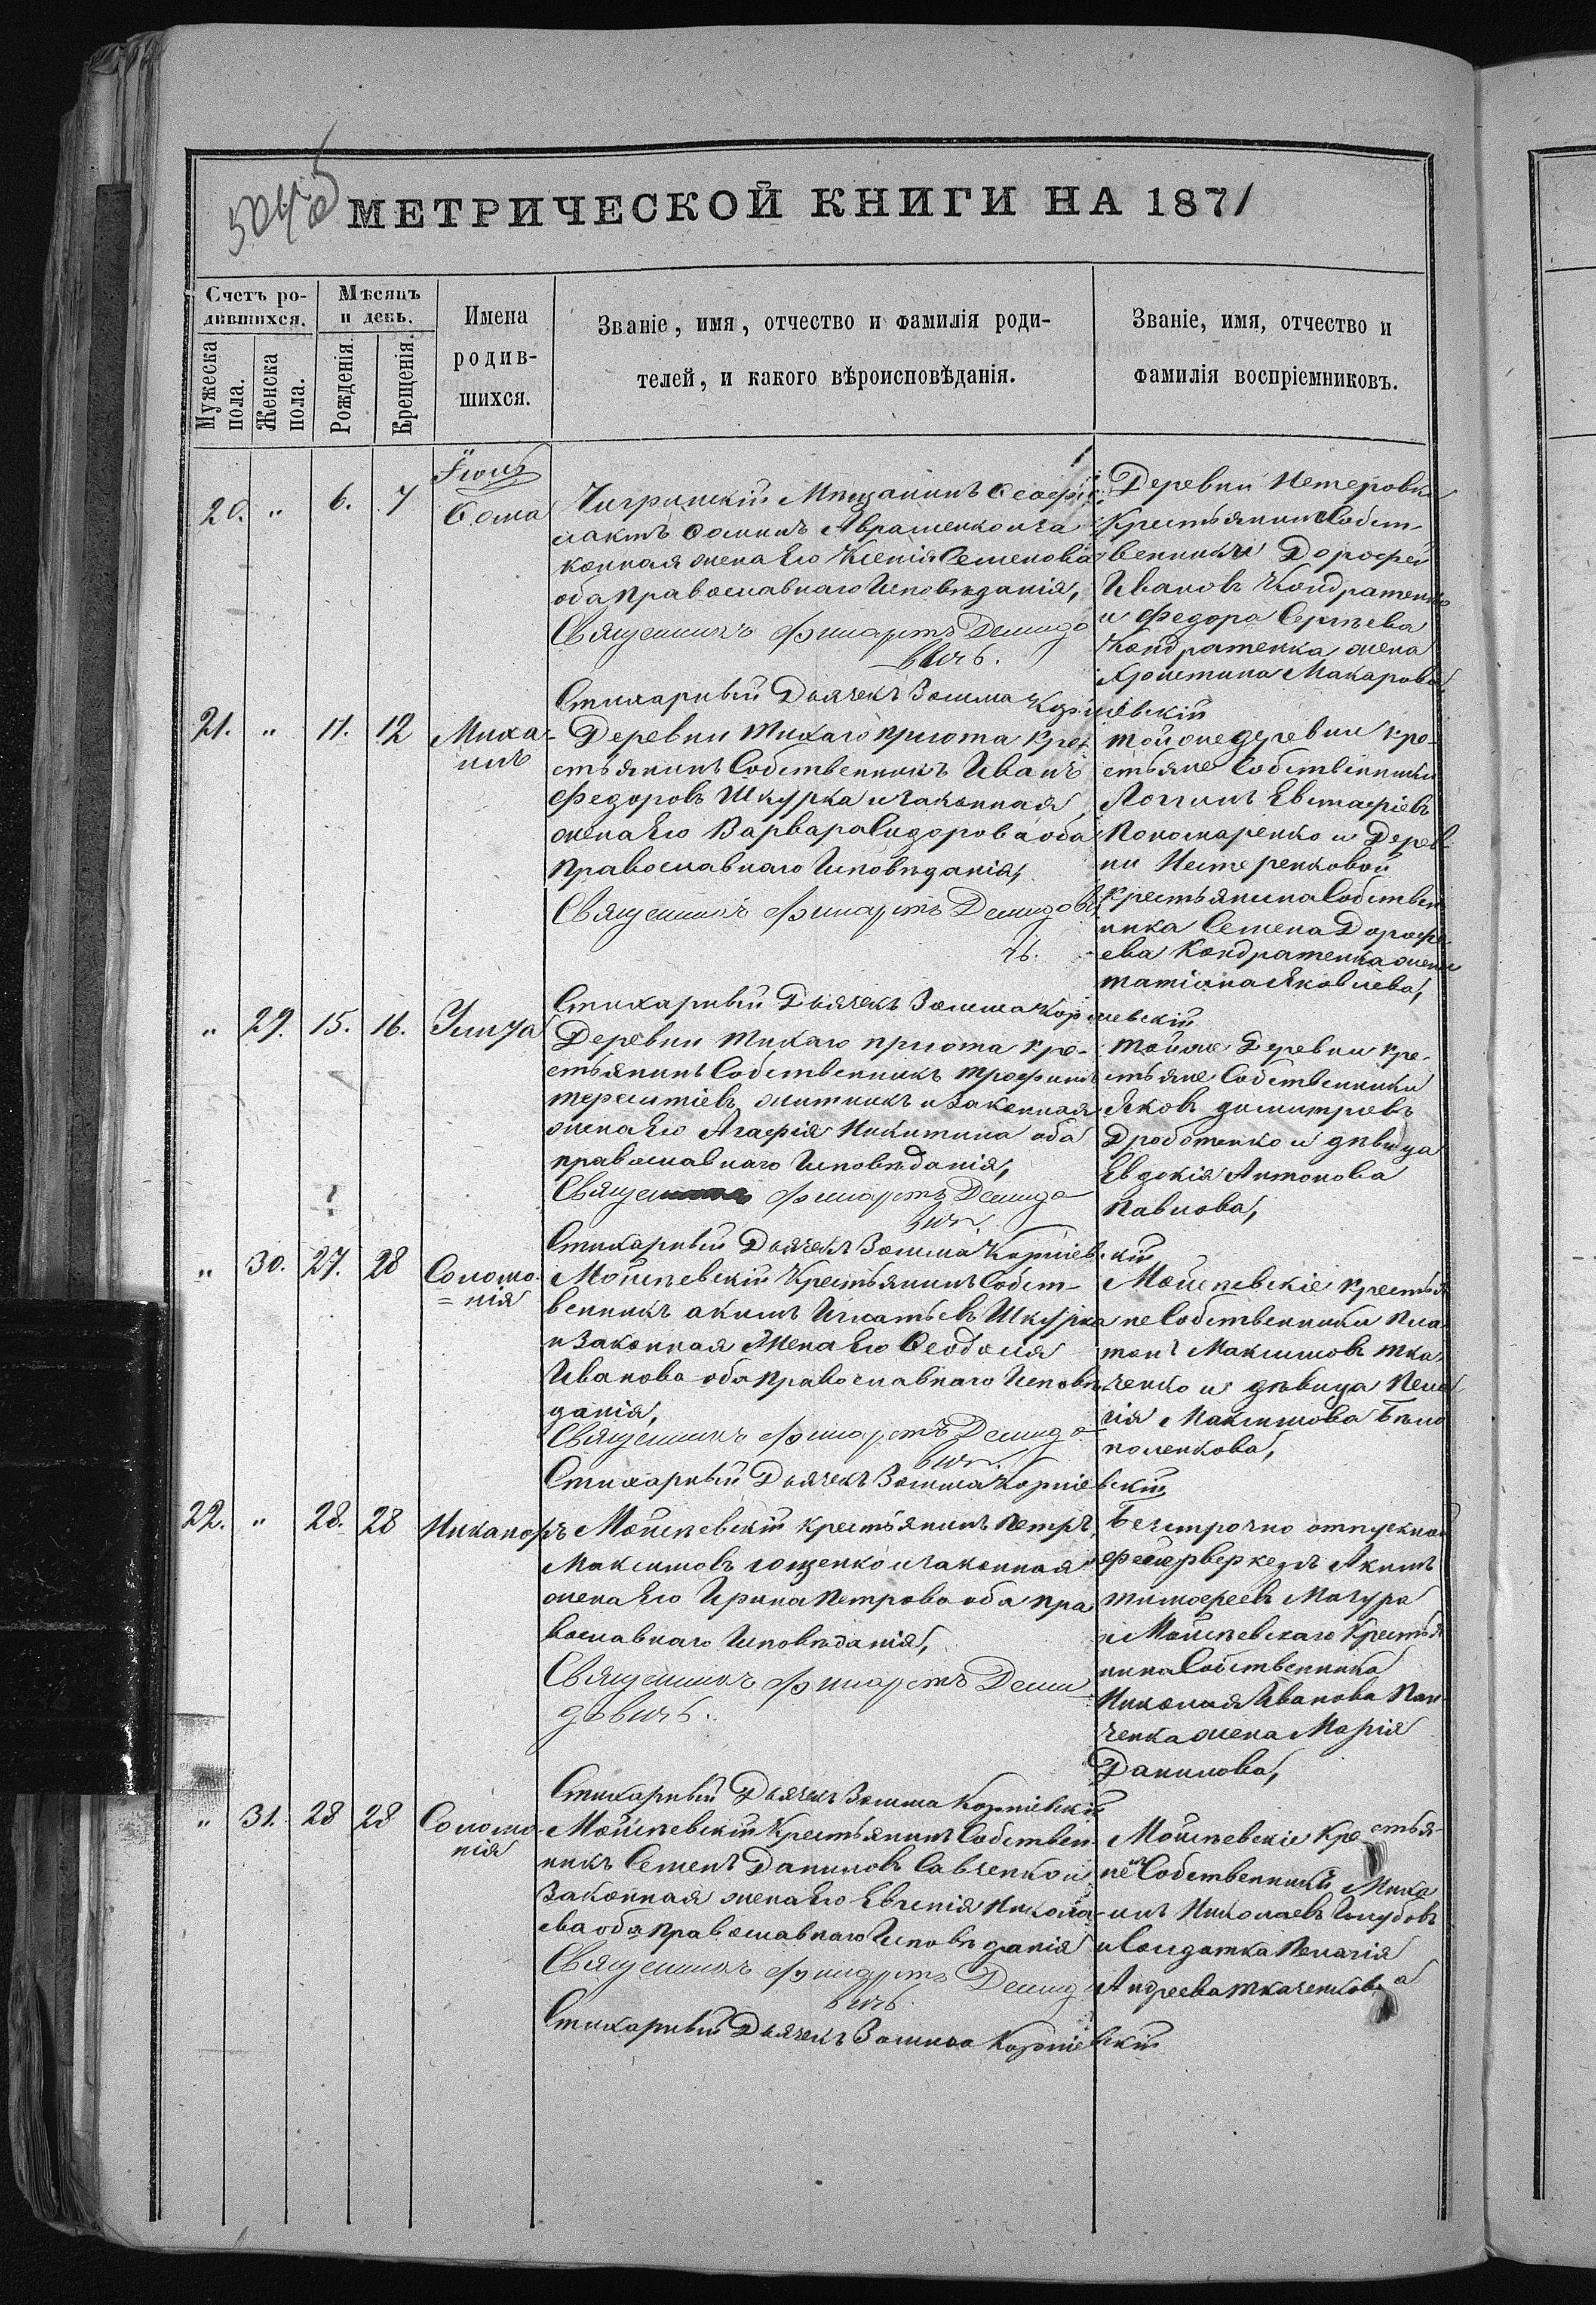 МЕТРИЧЕСКОЙ КНИГИ НА 1871
Счетъ ро-
дившихся.
Мѣсяцъ
и день.
Имена
родив-
шихся.
Званіе, имя, отчество и фамилія роди-
телей, и какого вѣроисповѣданія.
Званіе, имя, отчество и
фамилія воспріемниковъ.
Мужеска
пола.
Женска
пола.
Рожденія.
Крещенія.
20. " 6. 7
Ѳома
Чигринскій Мѣщанинъ
Ѳоминъ Авраменко и за
конная жена Его Ксенія Семенова
оба православнаго Исповѣданія,
Священникъ Филаретъ Демидо
вичъ.
Стихарный Дьячекъ Зосима Корніевскій
Деревни Нетеровки
Крестьянинъ Собст-
венникъ Дорофей
Ивановъ Кондратенко
и Федора Сергѣева
Кондратенка жена
Христина Макарова,
21. " 11. 12
Миха-
илъ
Деревни Тихаго пріюта Кре-
стьянинъ Собственникъ Иванъ
Федоровъ Шкурка и законная
жена Его Варвара Сидорова оба
православнаго Исповѣданія,
Священникъ Филаретъ Демидови
чъ.
Стихарный Дьячекъ Зосима Корніевскій
той же деревни Кре-
стьяне Собственники
Логгинъ Евстафіевъ
Пономаренко и Дерев-
ни Нестеренковой
Крестьянина Собствен
ника Семена Дорофе
ева Кондратенка жена
Татіана Яковлева,
" 29. 15. 16.
Улита
Деревни Тихаго пріюта Кре-
стьянинъ Собственникъ Трофимъ
Терентіевъ Житникъ и Законная
жена Его Агафія Никитина оба
православнаго Исповѣданія,
Священникъ Филаретъ Демидо
вичъ
Стихарный Дьячекъ Зосима Корніевскій
той же Деревни Кре-
стьяне Собственники
Яковъ Димитріевъ
Дроботенко и дѣвица
Евдокія Антонова
Павлова,
" 30. 27. 28
Соломо-
=нія
Мойсѣевскій Крестьянинъ Собст-
венникъ Акимъ Игнатьевъ Шкурка
и Законная Жена Его Феодосія
Иванова оба православнаго Исповѣ
данія,
Священникъ Филаретъ Демидо
вичъ.
Стихарный Дьячекъ Зосима Корніевскій
Мойсѣевскіе Крестья
не Собственники Пла
тонъ Максимовъ Тка
ченко и дѣвица Пела
гія Максимова Бѣло
поленкова,
22. " 28. 28
Никаноръ
Мойсѣевскій крестьянинъ Петръ
Максимовъ Ющенко и законная
жена Его Ирина Петрова оба пра
вославнаго Исповѣданія,
Священникъ Филаретъ Деми
довичъ.
Стихарный Дьячекъ Зосима Корніевскій
Безсрочно отпускной
фейерверкеръ Акимъ
Тимофеевъ Мазура
и Мойсѣевскаго Крестья
нина Собственника
Николая Иванова Пан
ченка жена Марія
Данилова,
" 31. 28 28
Соломо
нія
Мойсѣевскій Крестьянинъ Собствен
никъ Семенъ Даниловъ Савченко и
Законная жена Его Евгенія Никола-
ева оба православнаго Исповѣданія
Священникъ Филаретъ Демидо
вичъ.
Стихарный Дьячекъ Зосима Корніевскій
Мойсѣевскіе Крестья-
не Собственники Миха
илъ Николаевъ
и Солдатка Пелагія
Андреева Ткаченкова